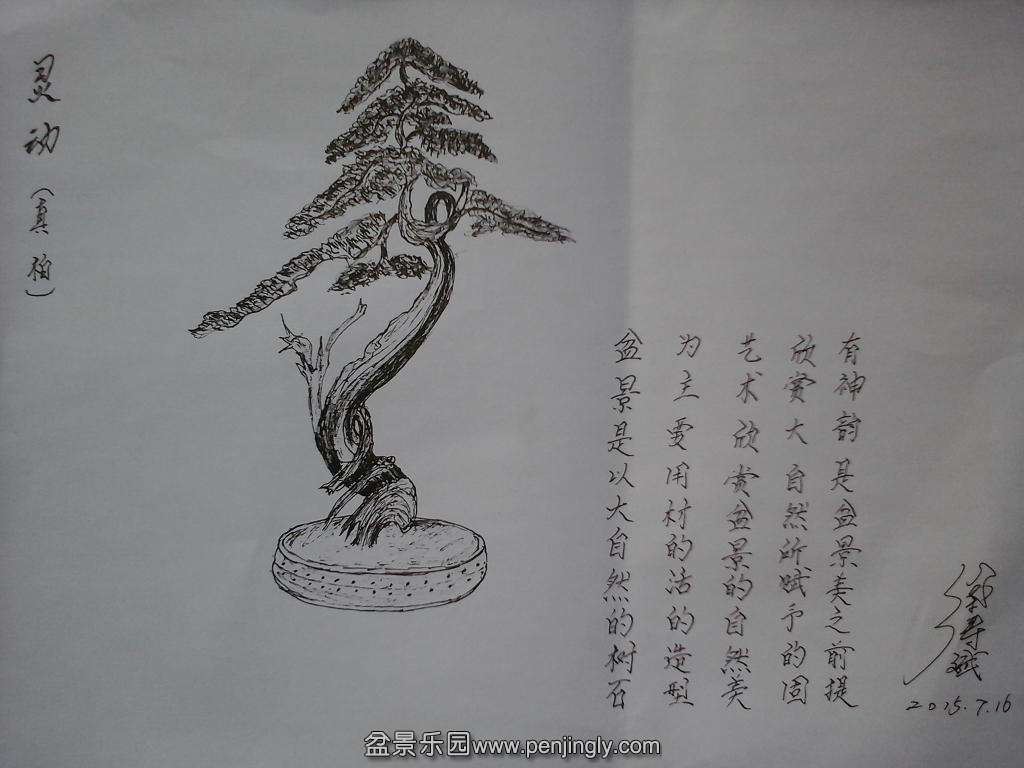 灵动（真柏）
盆景是以大自然的树石
为主要用材的活的造型
艺术欣赏盆景的自然美
欣赏大自然所赋予的固
有神韵是盆景美之前提
2015.7.16
盆景乐园www.penjingly.com